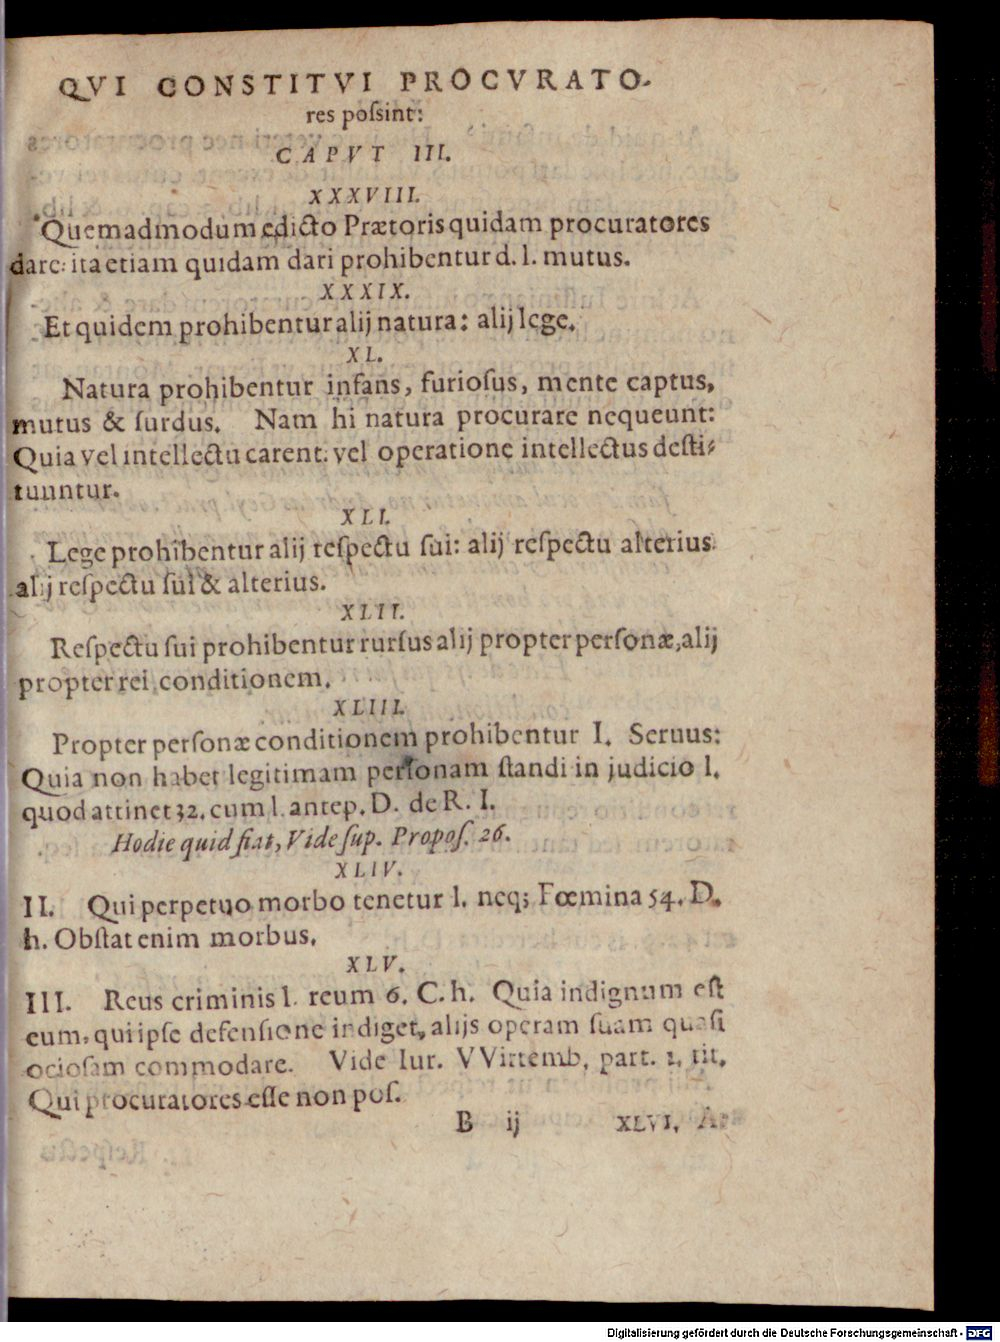 QVI CONSTITVI PROCVRATO-
res poſsint:
CAPVT III.
XXXVIII.
Quemadmodum edicto Prætoris quidam procuratores
dare: ita etiam quidam dari prohibentur d. l. mutus.
XXXIX.
Et quidem prohibentur alij natura: alij lege.
XL.
Natura prohibentur infans, furioſus, mente captus,
mutus & ſurdus. Nam hi natura procurare nequeunt:
Quia vel intellectu carent: vel operatione intellectus deſti-
tuuntur.
XLI.
Lege prohibentur alij reſpectu ſui: alij reſpectu alterius:
alij reſpectu ſui & alterius.
XLII.
Reſpectu ſui prohibentur rurſus alij propter perſonæ, alij
propter rei conditionem.
XLIII.
Propter perſonæ conditionem prohibentur I. Seruus:
Quia non habet legitimam perſonam ſtandi in judicio l.
quod attinet 32. cum l. antep. D. de R. I.
Hodie quid fiat, Vide ſup. Propoſ. 26.
XLIV.
II. Qui perpetuo morbo tenetur l. neq; Fœmina 54. D.
h. Obſtat enim morbus.
XLV.
III. Reus criminis l. reum 6. C. h. Quia indignum eſt
eum, qui ipſe defenſione indiget, alijs operam ſuam quaſi
ocioſam commodare. Vide Iur. VVirtemb, part. 1. tit.
Qui procuratores eſſe non poſ.
B ij XLVI.
Digitalisierung gefördert durch die Deutsche Forschungsgemeinschaft - DFG